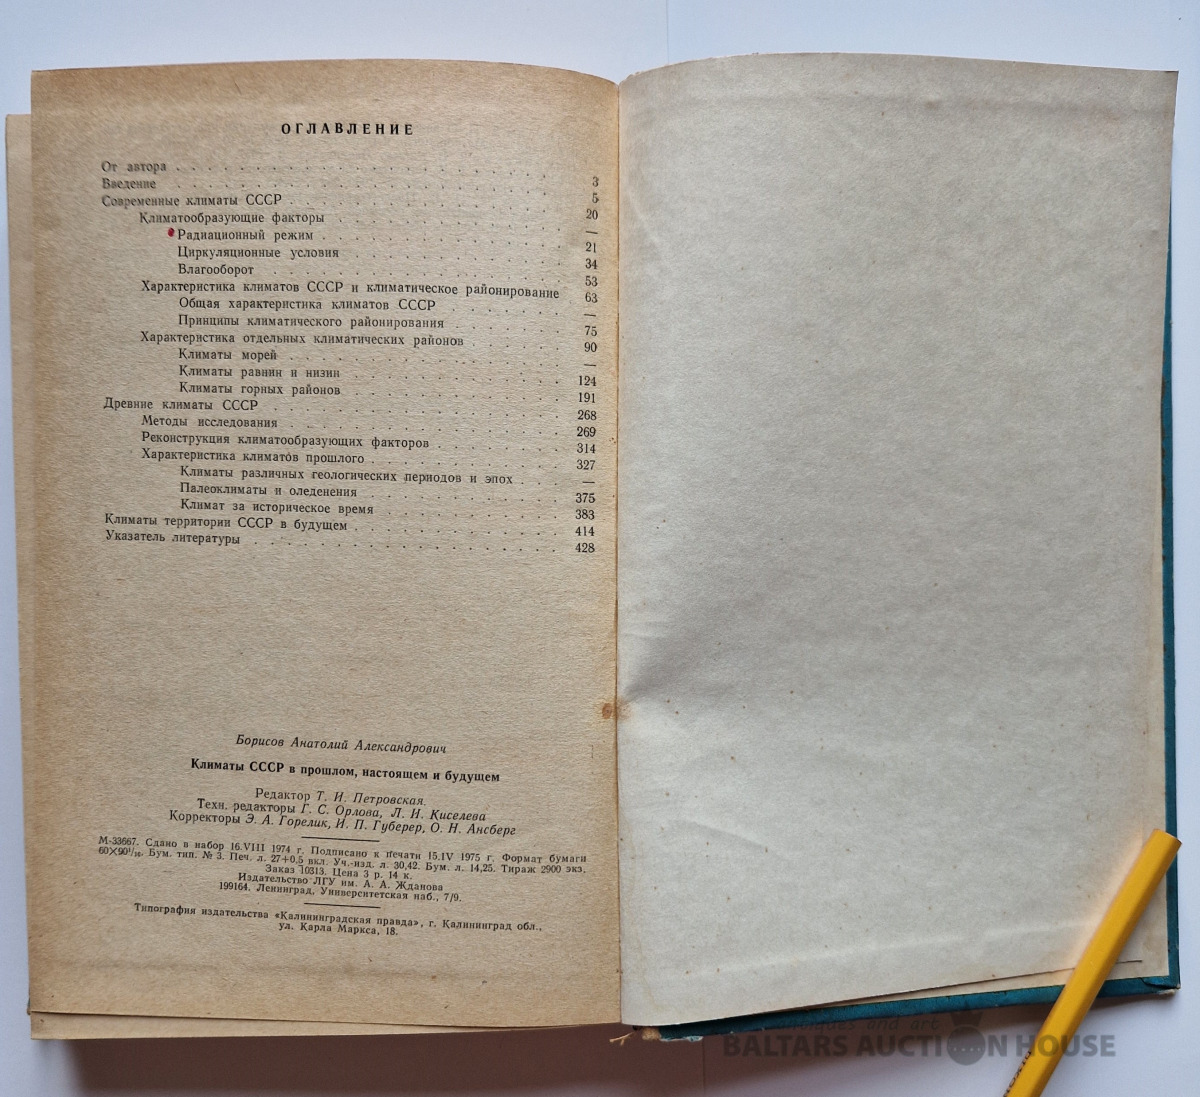 ОГЛАВЛЕНИЕ
От автора . . . . . . . . . . . . . . . . 3
Введение . . . . . . . . . . . . . . . . 5
Современные климаты СССР . . . . . . . . . . . 20
Климатообразующие факторы . . . . . . . . . —
Радиационный режим . . . . . . . . . . 21
Циркуляционные условия . . . . . . . . . 34
Влагооборот . . . . . . . . . . . . 53
Характеристика климатов СССР и климатическое районирование . 63
Общая характеристика климатов СССР . . . . . —
Принципы климатического районирования . . . . . 75
Характеристика отдельных климатических районов . . . . 90
Климаты морей . . . . . . . . . . . —
Климаты равнин и низин . . . . . . . . . 124
Климаты горных районов . . . . . . . . . 191
Древние климаты СССР . . . . . . . . . . . . 268
Методы исследования . . . . . . . . . . . 269
Реконструкция климатообразующих факторов . . . . . 314
Характеристика климатов прошлого . . . . . . . . 327
Климаты различных геологических периодов и эпох . . . —
Палеоклиматы и оледенения . . . . . . . . 375
Климат за историческое время . . . . . . . . 383
Климаты территории СССР в будущем . . . . . . . . 414
Указатель литературы . . . . . . . . . . . . . 428
Борисов Анатолий Александрович
Климаты СССР в прошлом, настоящем и будущем
Редактор Т. И. Петровская
Техн. редакторы Г. С. Орлова, Л. И. Киселева
Корректоры Э. А. Горелик, И. П. Губерер, О. Н. Ансберг
М-33667. Сдано в набор 16.VIII 1974 г. Подписано к печати 15.IV 1975 г. Формат бумаги
60×90¹/₁₆. Бум. тип. № 3. Печ. л. 27+0,5 вкл. Уч.-изд. л. 30,42. Бум. л. 14,25. Тираж 2900 экз.
Заказ 10313. Цена 3 р. 14 к.
Издательство ЛГУ им. А. А. Жданова
199164. Ленинград, Университетская наб., 7/9.
Типография издательства «Калининградская правда», г. Калининград обл.,
ул. Карла Маркса, 18.
antiques and art
BALTARS AUCTION HOUSE